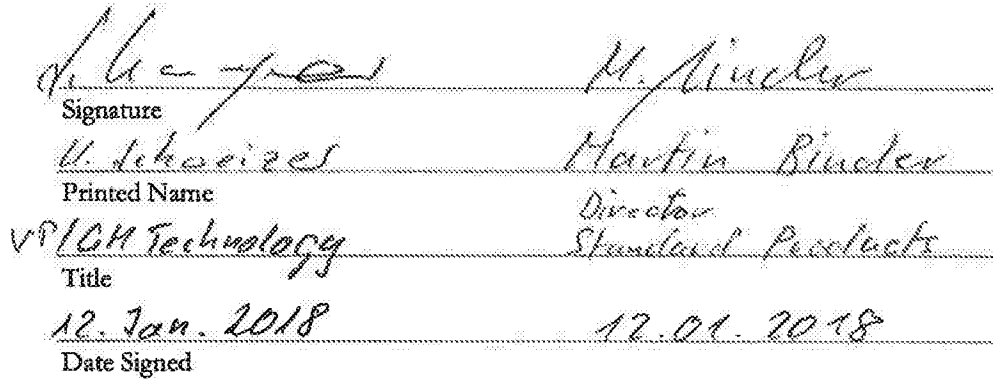 M. Binder
Signature
U. Schweizer Martin Binder
Printed Name
Director
VP/GM Technology Standard Products
Title
12. Jan. 2018 12.01.2018
Date Signed